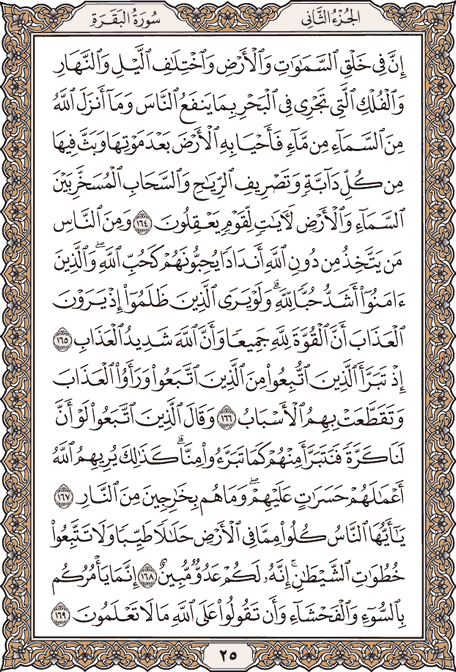 الجُزْءُ الثَّانِي سُورَةُ البَقَرَةِ
إِنَّ فِي خَلْقِ ٱلسَّمَٰوَٰتِ وَٱلْأَرْضِ وَٱخْتِلَٰفِ ٱلَّيْلِ وَٱلنَّهَارِ
وَٱلْفُلْكِ ٱلَّتِي تَجْرِي فِي ٱلْبَحْرِ بِمَا يَنفَعُ ٱلنَّاسَ وَمَآ أَنزَلَ ٱللَّهُ
مِنَ ٱلسَّمَآءِ مِن مَّآءٍ فَأَحْيَا بِهِ ٱلْأَرْضَ بَعْدَ مَوْتِهَا وَبَثَّ فِيهَا
مِن كُلِّ دَآبَّةٍ وَتَصْرِيفِ ٱلرِّيَٰحِ وَٱلسَّحَابِ ٱلْمُسَخَّرِ بَيْنَ
ٱلسَّمَآءِ وَٱلْأَرْضِ لَءَايَٰتٍ لِّقَوْمٍ يَعْقِلُونَ ١٦٤ وَمِنَ ٱلنَّاسِ
مَن يَتَّخِذُ مِن دُونِ ٱللَّهِ أَندَادًا يُحِبُّونَهُمْ كَحُبِّ ٱللَّهِۖ وَٱلَّذِينَ
ءَامَنُوٓا۟ أَشَدُّ حُبًّا لِّلَّهِۗ وَلَوْ يَرَى ٱلَّذِينَ ظَلَمُوٓا۟ إِذْ يَرَوْنَ
ٱلْعَذَابَ أَنَّ ٱلْقُوَّةَ لِلَّهِ جَمِيعًا وَأَنَّ ٱللَّهَ شَدِيدُ ٱلْعَذَابِ ١٦٥
إِذْ تَبَرَّأَ ٱلَّذِينَ ٱتُّبِعُوا۟ مِنَ ٱلَّذِينَ ٱتَّبَعُوا۟ وَرَأَوُا۟ ٱلْعَذَابَ
وَتَقَطَّعَتْ بِهِمُ ٱلْأَسْبَابُ ١٦٦ وَقَالَ ٱلَّذِينَ ٱتَّبَعُوا۟ لَوْ أَنَّ
لَنَا كَرَّةً فَنَتَبَرَّأَ مِنْهُمْ كَمَا تَبَرَّءُوا۟ مِنَّاۗ كَذَٰلِكَ يُرِيهِمُ ٱللَّهُ
أَعْمَٰلَهُمْ حَسَرَٰتٍ عَلَيْهِمْۖ وَمَا هُم بِخَٰرِجِينَ مِنَ ٱلنَّارِ ١٦٧
يَٰٓأَيُّهَا ٱلنَّاسُ كُلُوا۟ مِمَّا فِي ٱلْأَرْضِ حَلَٰلًا طَيِّبًا وَلَا تَتَّبِعُوا۟
خُطُوَٰتِ ٱلشَّيْطَٰنِۚ إِنَّهُۥ لَكُمْ عَدُوٌّ مُّبِينٌ ١٦٨ إِنَّمَا يَأْمُرُكُم
بِٱلسُّوٓءِ وَٱلْفَحْشَآءِ وَأَن تَقُولُوا۟ عَلَى ٱللَّهِ مَا لَا تَعْلَمُونَ ١٦٩
٢٥